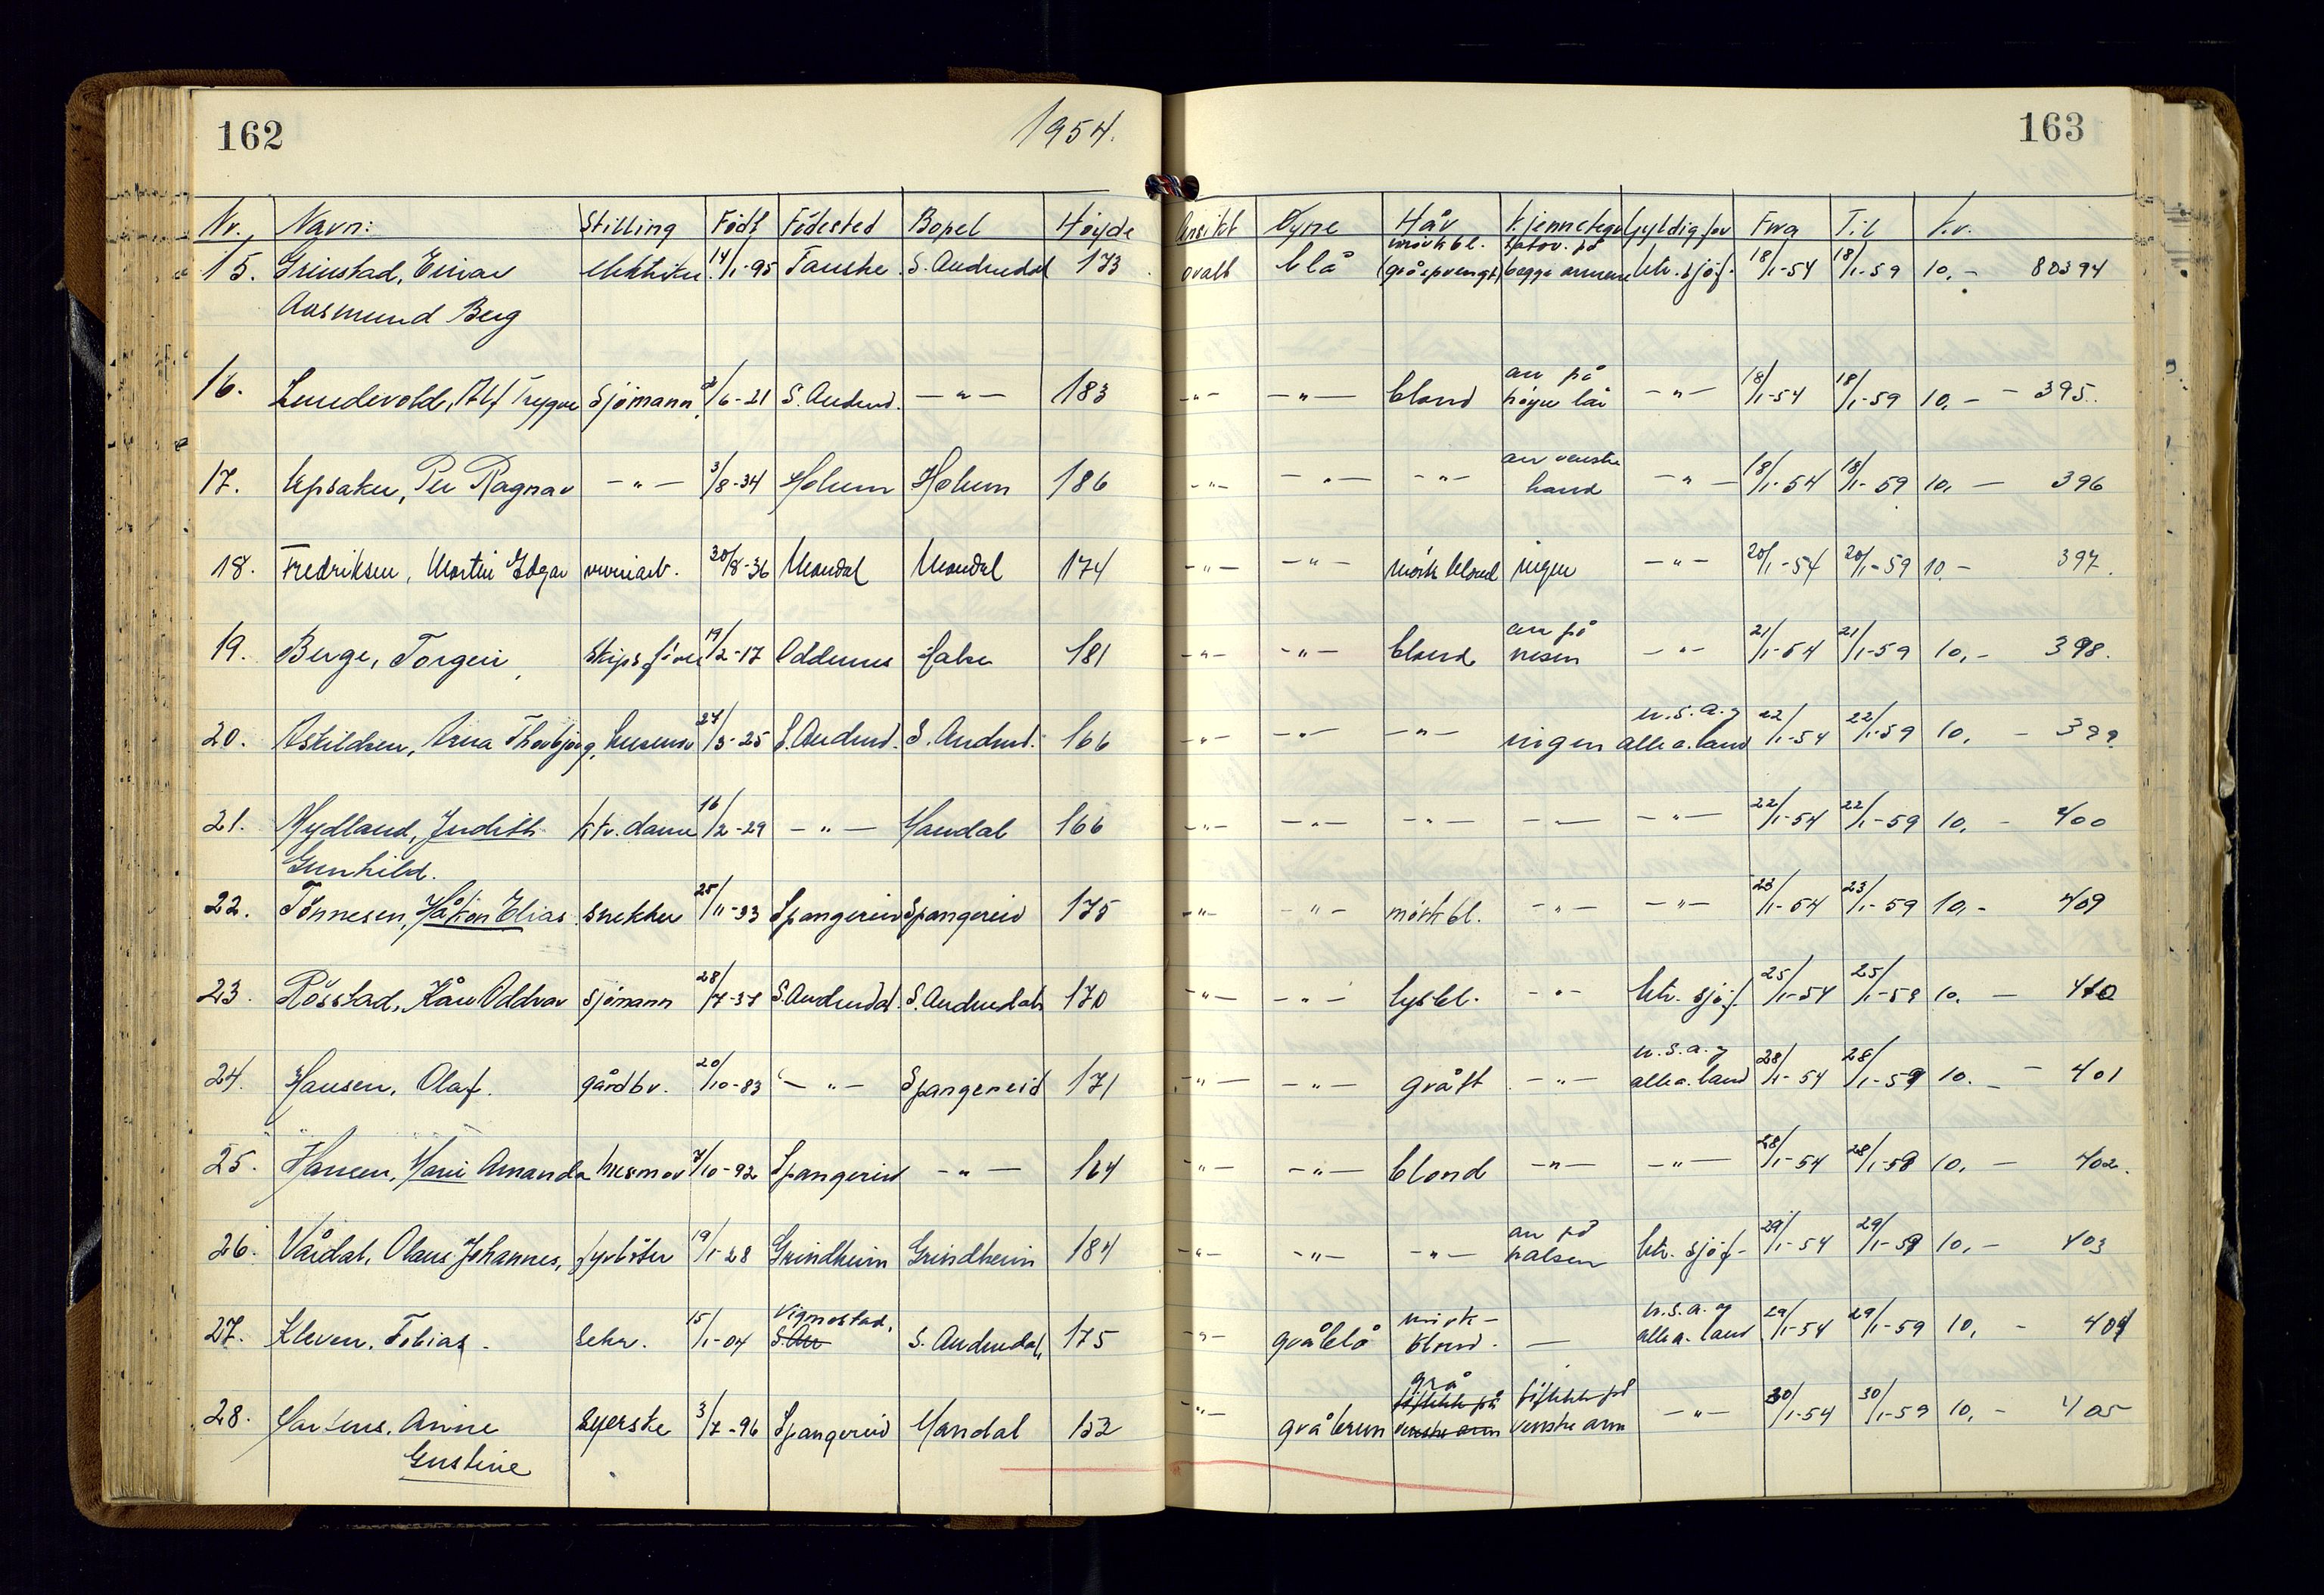 162
1954.
163
Nr. Navn: Stilling Född Födested Bopel Höyde Ansikt Öyne Hår Kjennetegn Gyldig for Fra Til Kr.
mörk bl. tatov. på
15. Grinstad, Einar elektriker 14/1-95 Fauske S. Audnedal 173 ovalt blå (gråsprengt) begge armene utv. sjöf. 18/1-54 18/1-59 10,- 80394
Aasmund Berg
arr på
16. Lundevold, Alf Trygve Sjömann 2/6-21 S. Audned. -"- 183 -"- -"- blond höyre lår -"- 18/1-54 18/1-59 10,- - 395.
arr venstre
17. Upsaker, Per Ragnar -"- 3/8-34 Holum Holum 186 -"- -"- -"- hand -"- 18/1-54 18/1-59 10,- 396
18. Fredriksen, Martin Edgar 30/8-36 Mandal Mandal 174 -"- -"- mörk blond ingen -"- 20/1-54 20/1-59 10- 397.
arr på
19. Berge, Torgeir, Skipsförer 19/2-17 Oddernes 181 -"- -"- blond nesen -"- 21/1-54 21/1-59 10,- 398.
u.s.a. og
20. Askildsen, Anna Thorbjörg, husmor 27/3-25 S. Audned. S. Audned. 166 -"- -"- -"- ingen alle a. land 22/1-54 22/1-59 10,- 399.
21. Mydland, Judith ktr. dame 16/2-29 -"- Mandal 166 -"- -"- -"- -"- -"- 22/1-54 22/1-59 10,- 400
Gunhild.
22. Tönnesen, Håkon Elias snekker 25/11-33 Spangereid Spangereid 175 -"- -"- mörk bl. -"- -"- 23/1-54 23/1-59 10,- 409
23. Rösstad, Kåre Oddvar sjömann 28/7-37 S. Audnedal. S. Audnedal 170 -"- -"- lysbl. -"- utv. sjöf. 25/1-54 25/1-59 10,- 410
u.s.a. og
24. Hansen, Olaf. gårdbr. 20/10-83 -"- Spangereid 171 -"- -"- grått -"- alle a. land 28/1-54 28/1-59 10.- - 401
25. Hansen, Marie Amanda husmor 7/10-92 Spangereid -"- 164 -"- -"- blond -"- -"- 28/1-54 28/1-59 10,- 402.
arr på
26. Vårdal, Olaus Johannes, fyrböter 19/1-28 Grindheim Grindheim 184 -"- -"- -"- halsen utv. sjöf- 29/1-54 29/1-59 10,- 403
Vigmostad, mörk- u.s.a. og
27. Kleven, Tobias. Sekr. 15/1-04 S. Au S. Audnedal, 175 -"- gråblå blond. - alle a. land 29/1-54 29/1-59 10,- 404
grå
föflekk på föflekk på
28. Martens, Anine Syerske 3/7-96 Spangereid Mandal 152 -"- gråbrun venstre arm venstre arm -"- 30/1-54 30/1-59 10,- 405
Gustine